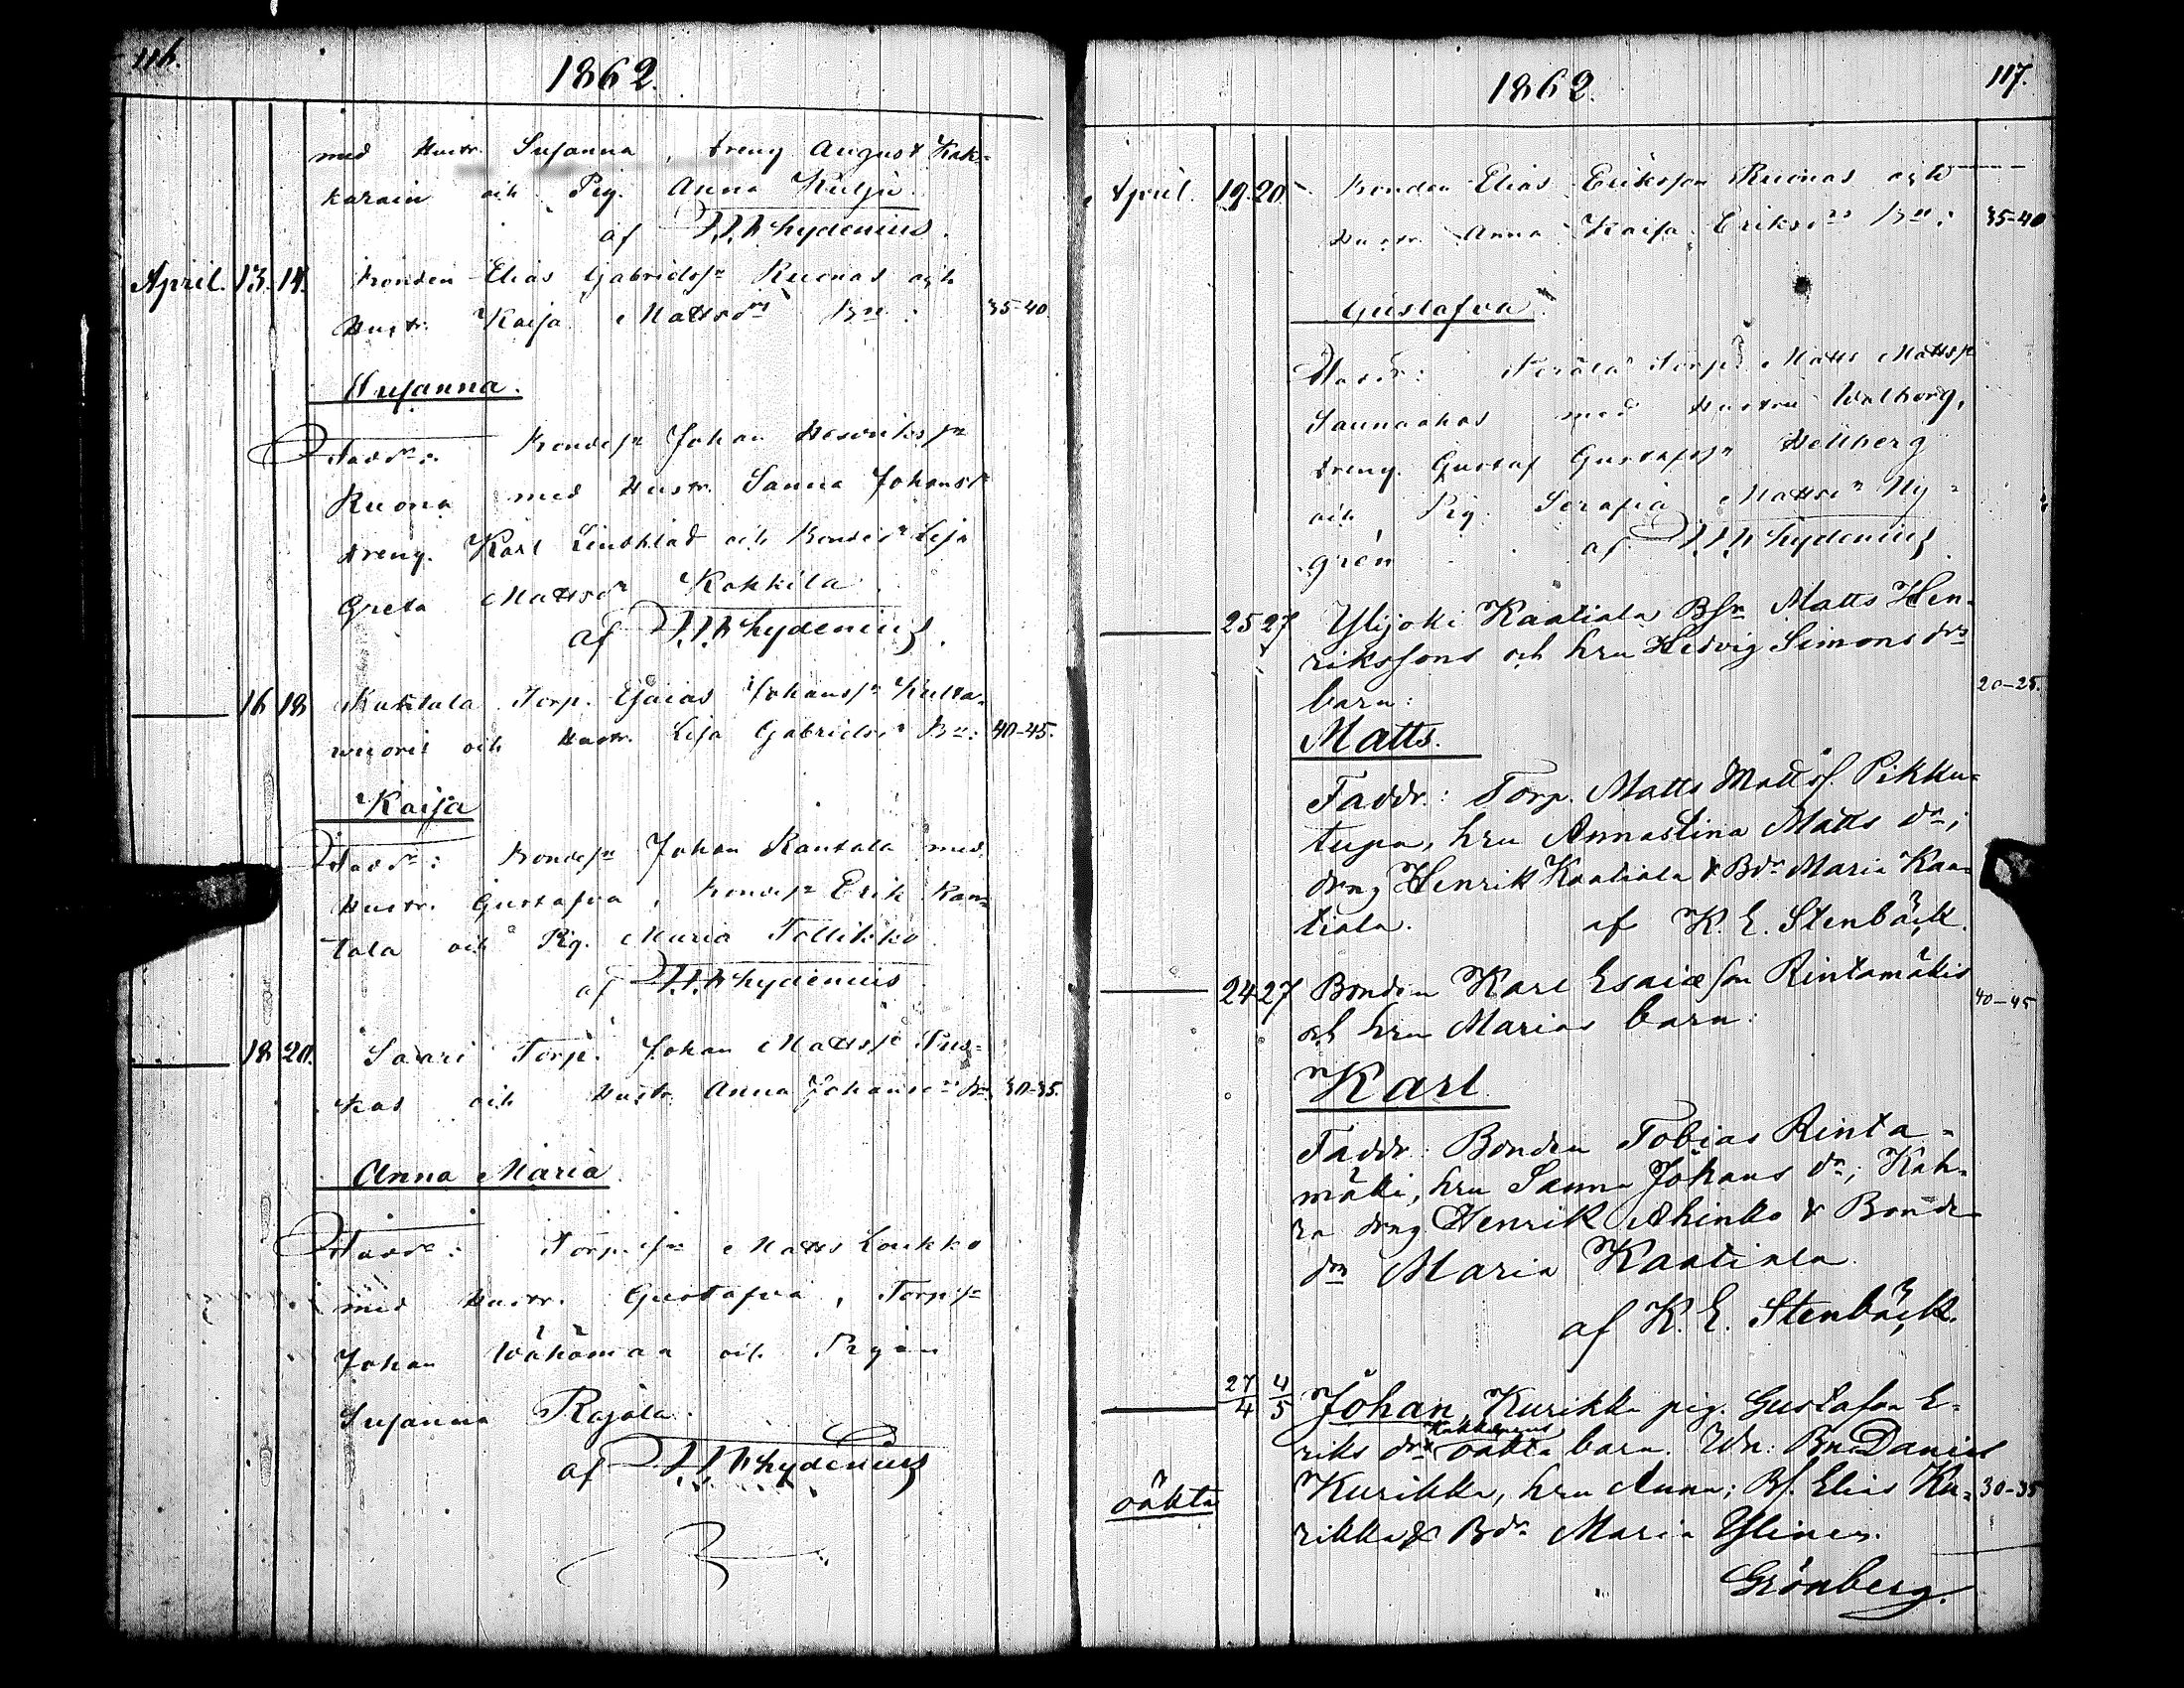 116.
1862.
med Hustr. Susanna, dreng August Kak-
karain och Pig. Anna Kulju
af Lydenius.
April. 13. 14. Bonden Elias Gabrielsn Ruonas och
Hustr. Kaisa Mattsdrs Bn: 35-40
Susanna.
Faddr: Bondesn Johan Henrikssn
Ruona med Hustr. Sanna Johansdr
dreng. Karl Lindblad och Bondedr Lisa
Greta Mattsdr Kokkila.
af Lydenius.
16 18 Torp. Esaias Johanssn
och Hustr. Lisa Gabrielsdrs Bn: 40-45.
Kaisa
Faddr: Bondesn Johan Rantala med
Hustr. Gustafva, bondesn Erik Ran-
tala och Pig. Maria Tollikko.
af Lydenius
18 20. Saari Torp. Johan Mattssn
kas och Hustr. Anna Johansdrs Bn 30-35.
Anna Maria.
Faddr: Torp.sn Matts Loukko
med Hustr. Gustafva, Torpsn
Johan Wähämaa och Pigan
Susanna Rajala.
af Lydenius
117.
1862.
April. 19. 20. Bonden Elias Eriksson Ruonas och
Hustr. Anna Kaisa Eriksdrs Bn: 35-40
Gustafva.
Faddr: Torp. Matts Mattssn
Saunaahos med Hustru Walborg,
dreng. Gustaf Gustafssn Hellberg
och Pig. Serafia Mattsdr Ny-
grén af Lydenius
25 27 Ylijoki Kaatiala Bsn Matts Hen-
rikssons och hru Hedvig Simons drs
barn: 20-25.
Matts.
Faddr.: Torp. Matts Mattss. Pikku-
tupa, hru Annastina Matts dr;
dreng Henrik Kaatiala & Bdr Maria Kaa-
tiala. af K. E. Stenbäck.
24 27 Bonden Karl Esaiæson Rintamäkis 40-45
och hru Marias barn:
Karl.
Faddr: Bonden Tobias Rinta-
mäki, hru Sanna Johans dr; Kah-
ra dreng Henrik Ahinko & Bonde
dr Maria Kaatiala.
af K. E. Stenbäck.
27/4 4/5 Johan, Kurikka pig. Gustafva E-
riks drs oäkta barn. Wn: Bn Daniel
oäkta Kurikka, hru Anna; Bs. Elias Ku- 30-35
rikka & Bdr Maria Ylinen.
Grönberg.